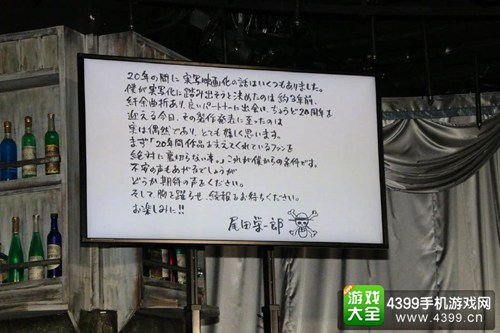 20年の間に実写映画化の話はいくつもありました。
僕が実写化に踏み出そうと決めたのは約3年前、
紆余曲折あり、広いパートナーに出会い、ちょうど20周年を
迎える今日、その製作発表に至ったのは
実は偶然であり、とても嬉しく思います。
まず「20年間作品を支えてくれているファンを
絶対に裏切らない事。」これが僕からの条件です。
不安の声もあがるでしょうが
どうか期待の声をください。
そして胸を躍らせ、続報をお待ちください。
お楽しみに!!
尾田栄一郎
游戏大全
4399手机游戏网
www.4399.cn